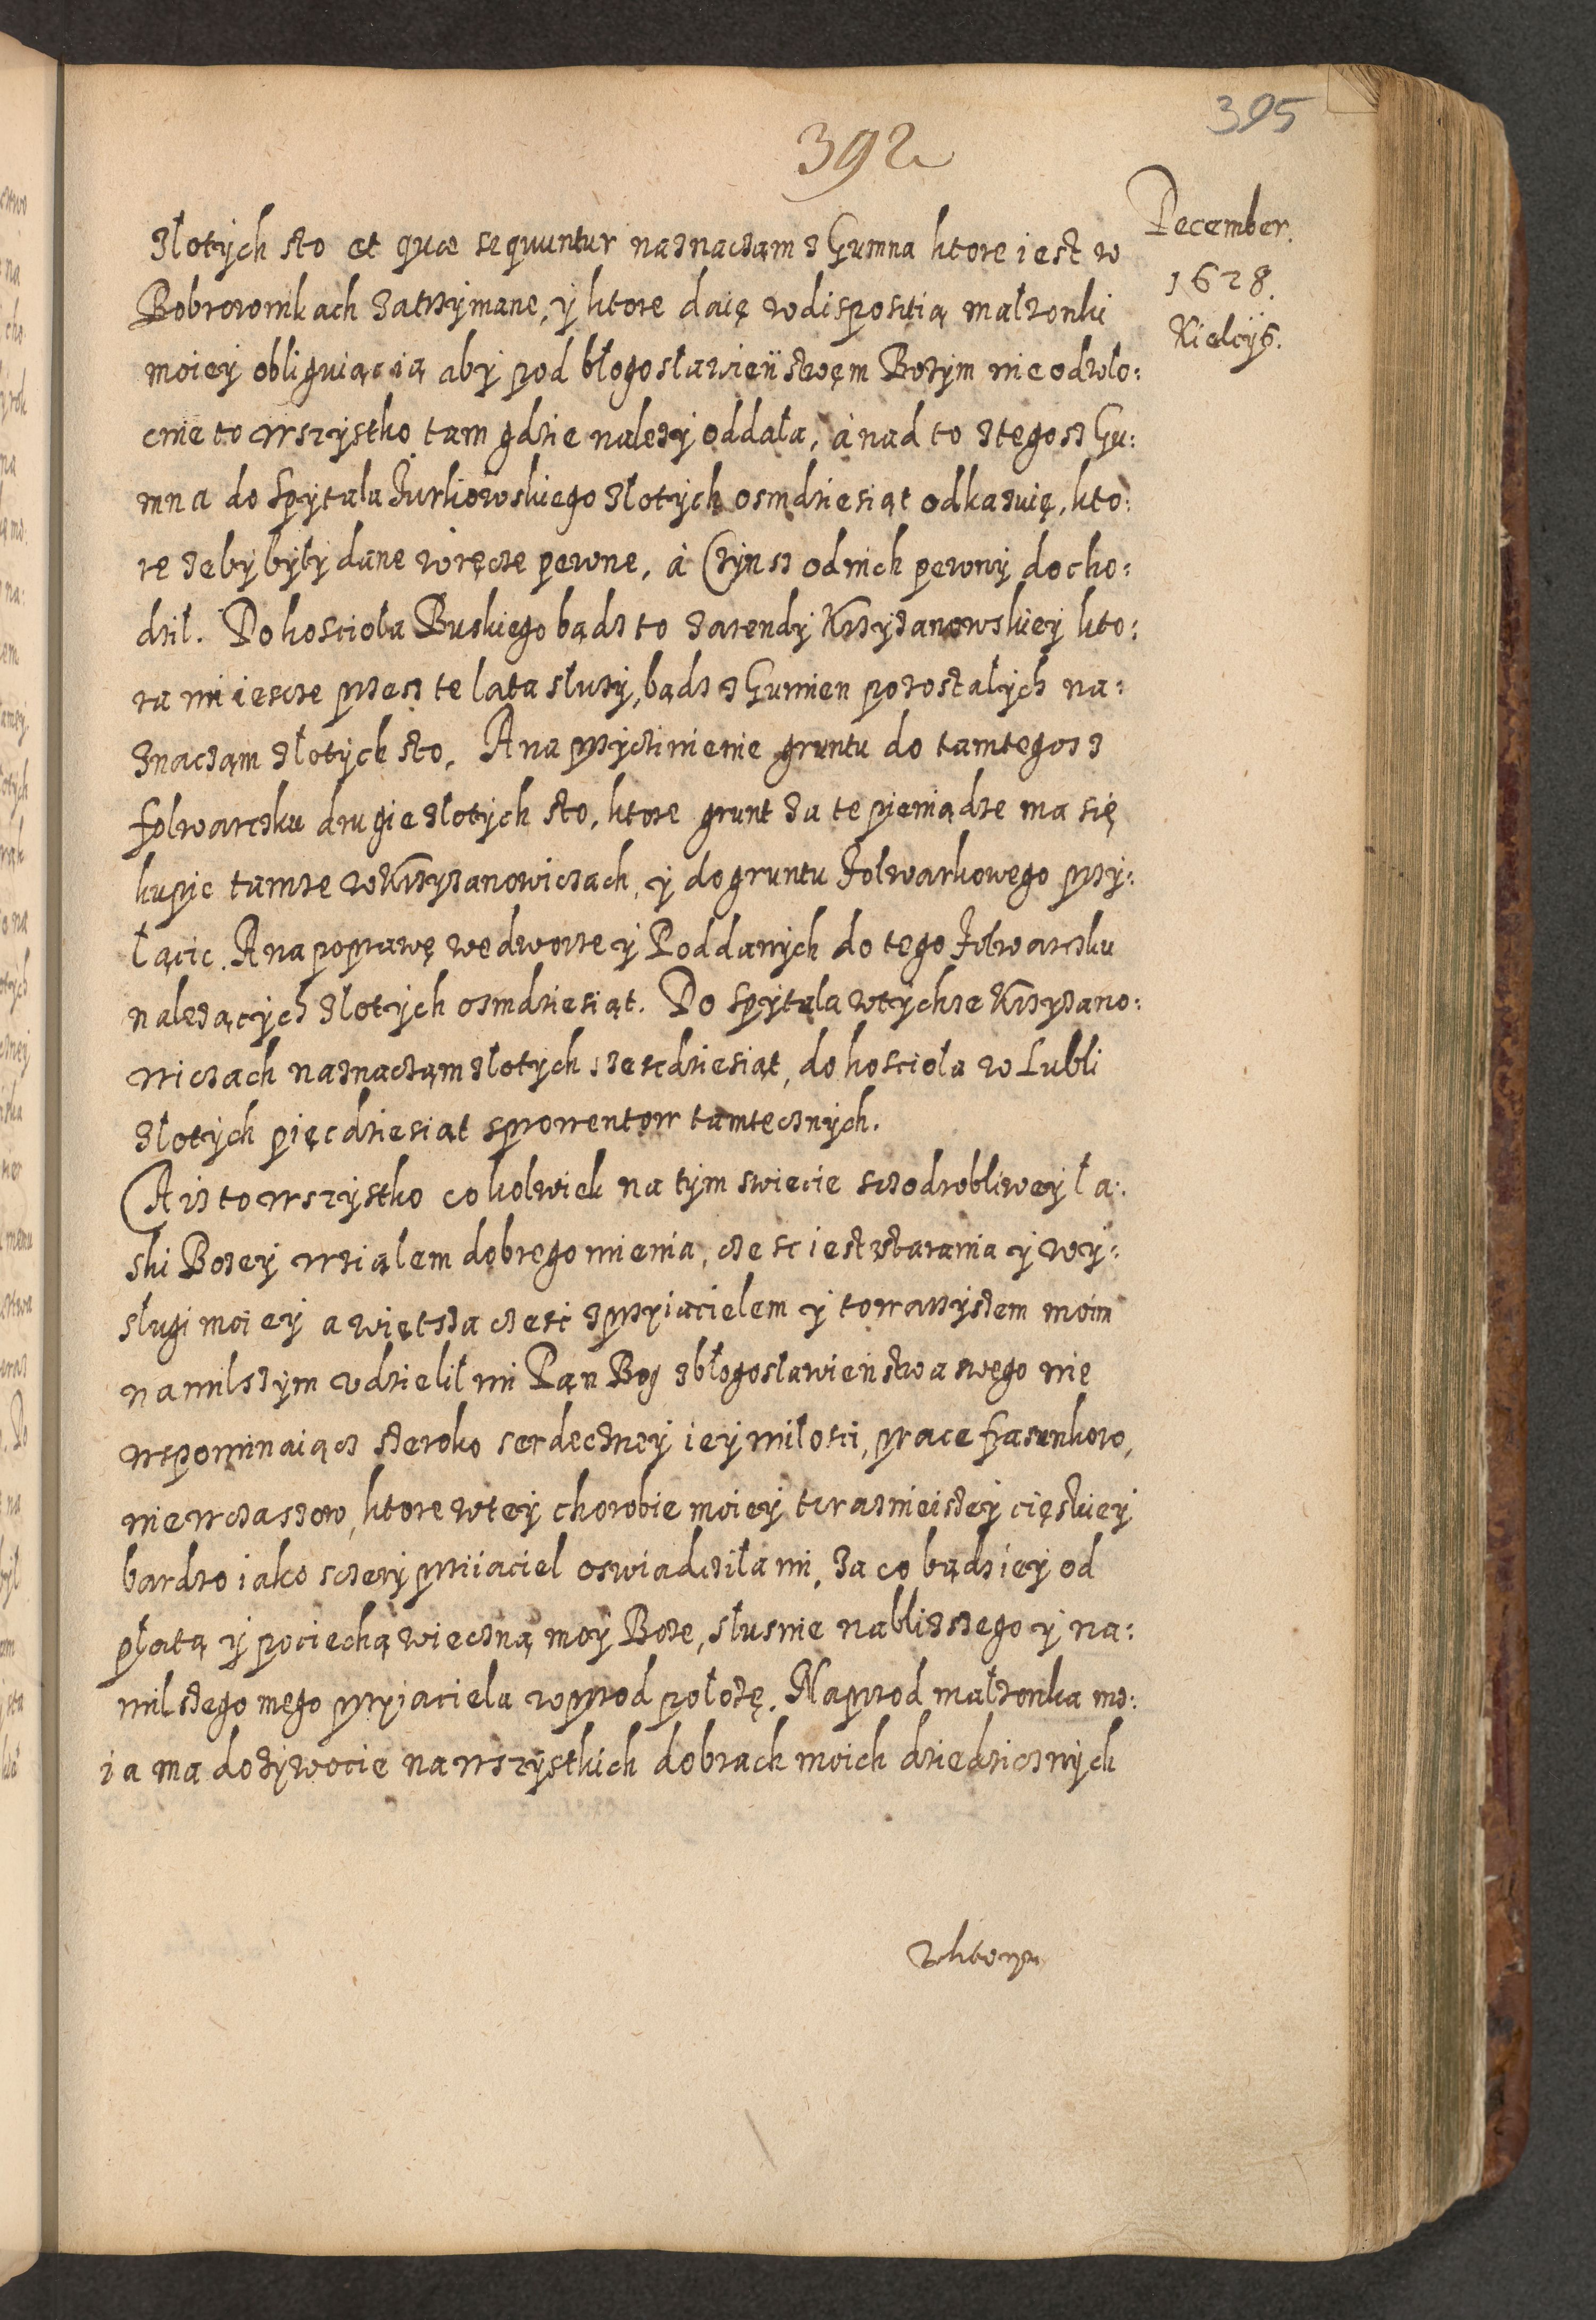 395
392
December.
1628.
Kielcÿs.
złotÿch sto et quæ sequuntur naznaczam z Gumna ktore iest w
Bobrownikach zatrzÿmane, ÿ ktore daię wdispositią małzonki
moieÿ obliguiącią abÿ pod błogosławieństwęm Bozÿm nieodwło:
cnie to wszÿstko tam gdzie nalezÿ oddała, à nad to ztegosz Gu:
mna do Spÿtala Zurkowskiego złotÿch osmdziesiąt odkazuię, kto:
re zebÿ bÿłÿ dane wręcze pewne, à Czÿnsz odnich pewnÿ docho:
dził. Do koscioła Buskiego bądz to zarendÿ Krzÿzanowskieÿ kto:
ra mi iescze przesz te lata służÿ, bądz z Gumien pozostałÿch na:
znaczam złotÿch sto, A na przÿczinienie gruntu do tamtegosz
folwarczku drugie złotÿch sto, ktore grunt za te pieniądze ma się
kupic tamze wKrzÿzanowiczach, ÿ do gruntu folwarkowego przÿ:
łącic. A na poprawę wedworze ÿ Poddanÿch do tego folwarczku
nalezącÿch złotÿch osmdziesiąt. Do Spÿtala wtÿchze Krzÿzano:
wiczach naznaczam złotÿch szescdziesiąt, do koscioła w Lubli
złotÿch pięcdziesiąt sprowentow tamtecznÿch.
A isz to wszÿstko cokolwiek na tÿm swiecie sczodrobliweÿ ła:
ski Bozeÿ wziąłem dobrego mienia, czesc iest zstarania ÿ wÿ:
sługi moieÿ a więtsza czesc zprzÿiacielem ÿ towarzÿszem moim
namilszÿm vdzielił mi Pąn Bog zbłogosławieństwa swęgo nie
wspominaiącz szeroko serdeczneÿ ieÿ miłosci, prace frasunkow,
niewczaszow, ktore wteÿ chorobie moieÿ terazniejszeÿ cięszkieÿ
bardzo iako sczerÿ prziiaciel oswiadcziła mi, za co bądz ieÿ od
płatą ÿ pociechą wieczną moÿ Boze, słusnie nablizszego ÿ na:
milszego mego przÿiaciela wprzod połozę. Naprzod małzonka mo:
ia ma dozÿwocie na wszÿstkich dobrach moich dziedzicznÿch
wktorÿ